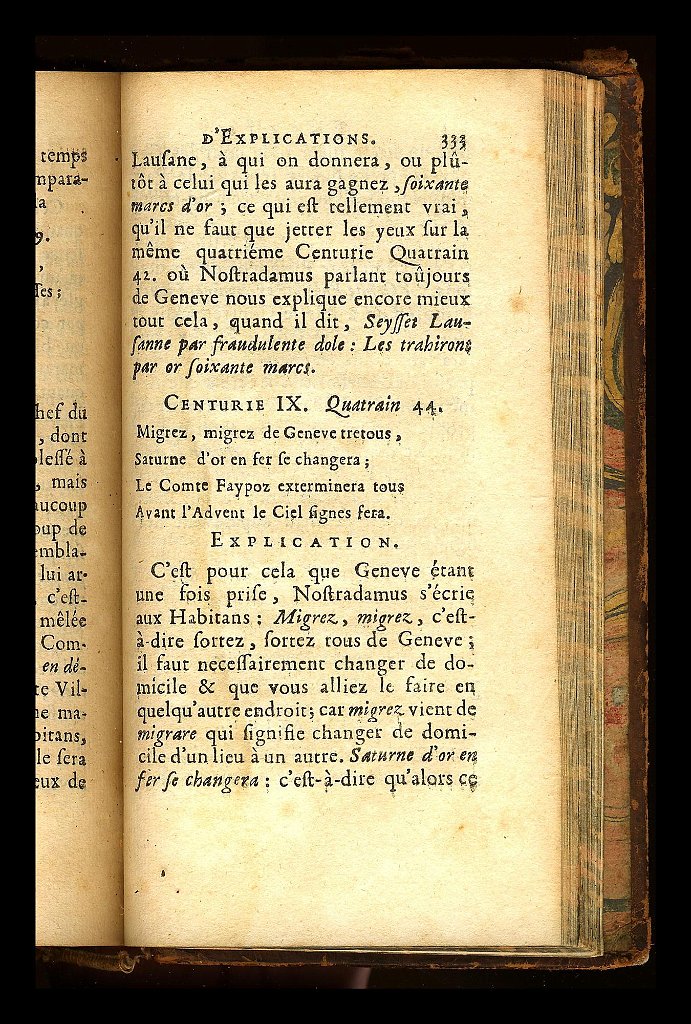 temps
mpara-
a
9.
,
ſes ;
hef du
, dont
leſſé à
, mais
aucoup
oup de
embla-
lui ar-
c'eſt-
mêlée
Com-
en dé-
te Vil-
ne ma-
bitans,
le ſera
eux de
D'EXPLICATIONS. 333
Lauſane, à qui on donnera, ou plû-
tôt à celui qui les aura gagnez, ſoixante
marcs d'or ; ce qui eſt tellement vrai,
qu'il ne faut que jetter les yeux ſur la
même quatriéme Centurie Quatrain
42. où Noſtradamus parlant toûjours
de Geneve nous explique encore mieux
tout cela, quand il dit, Seyſſet Lau-
ſanne par fraudulente dole : Les trahirons
par or ſoixante marcs.
CENTURIE IX. Quatrain 44.
Migrez, migrez de Geneve tretous,
Saturne d'or en fer ſe changera ;
Le Comte Faypoz exterminera tous
Avant l'Advent le Ciel ſignes fera.
EXPLICATION.
C'eſt pour cela que Geneve étant
une fois priſe, Noſtradamus s'écrie
aux Habitans : Migrez, migrez, c'eſt-
à-dire ſortez, ſortez tous de Geneve ;
il faut neceſſairement changer de do-
micile & que vous alliez le faire en
quelqu'autre endroit; car migrez vient de
migrare qui ſignifie changer de domi-
cile d'un lieu à un autre. Saturne d'or en
fer ſe changera : c'eſt-à-dire qu'alors ce